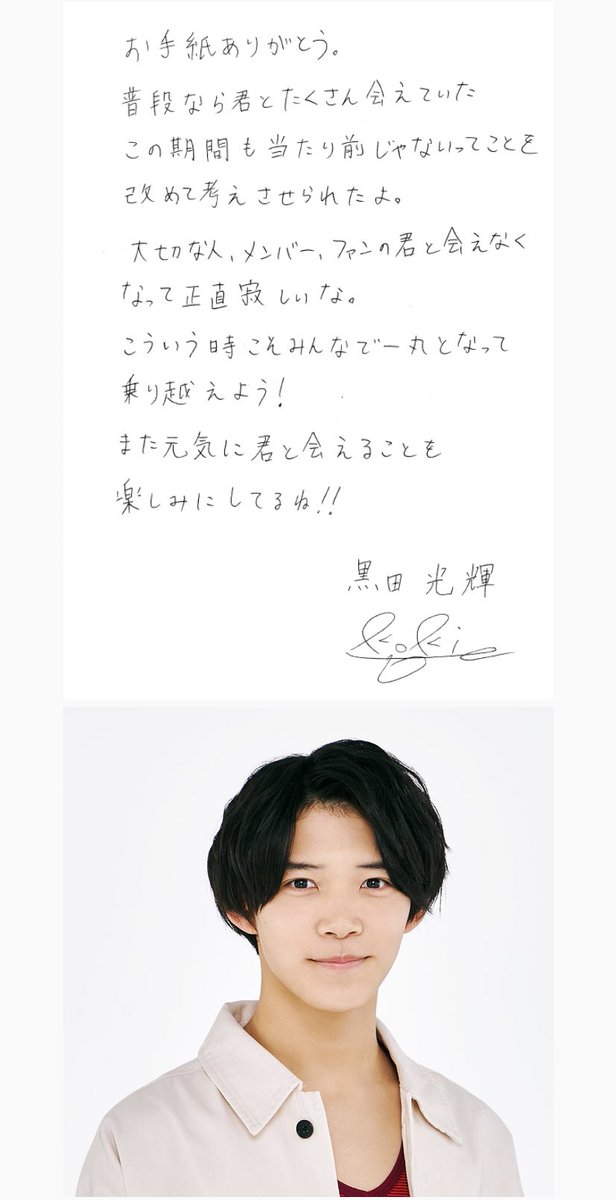 お手紙ありがとう。
普段なら君とたくさん会えていた
この期間も当たり前じゃないってことを
改めて考えさせられたよ。
大切な人、メンバー、ファンの君と会えなく
なって正直寂しいな。
こういう時こそみんなで一丸となって
乗り越えよう!
また元気に君と会えることを
楽しみにしてるね!!
黒田光輝
Koki